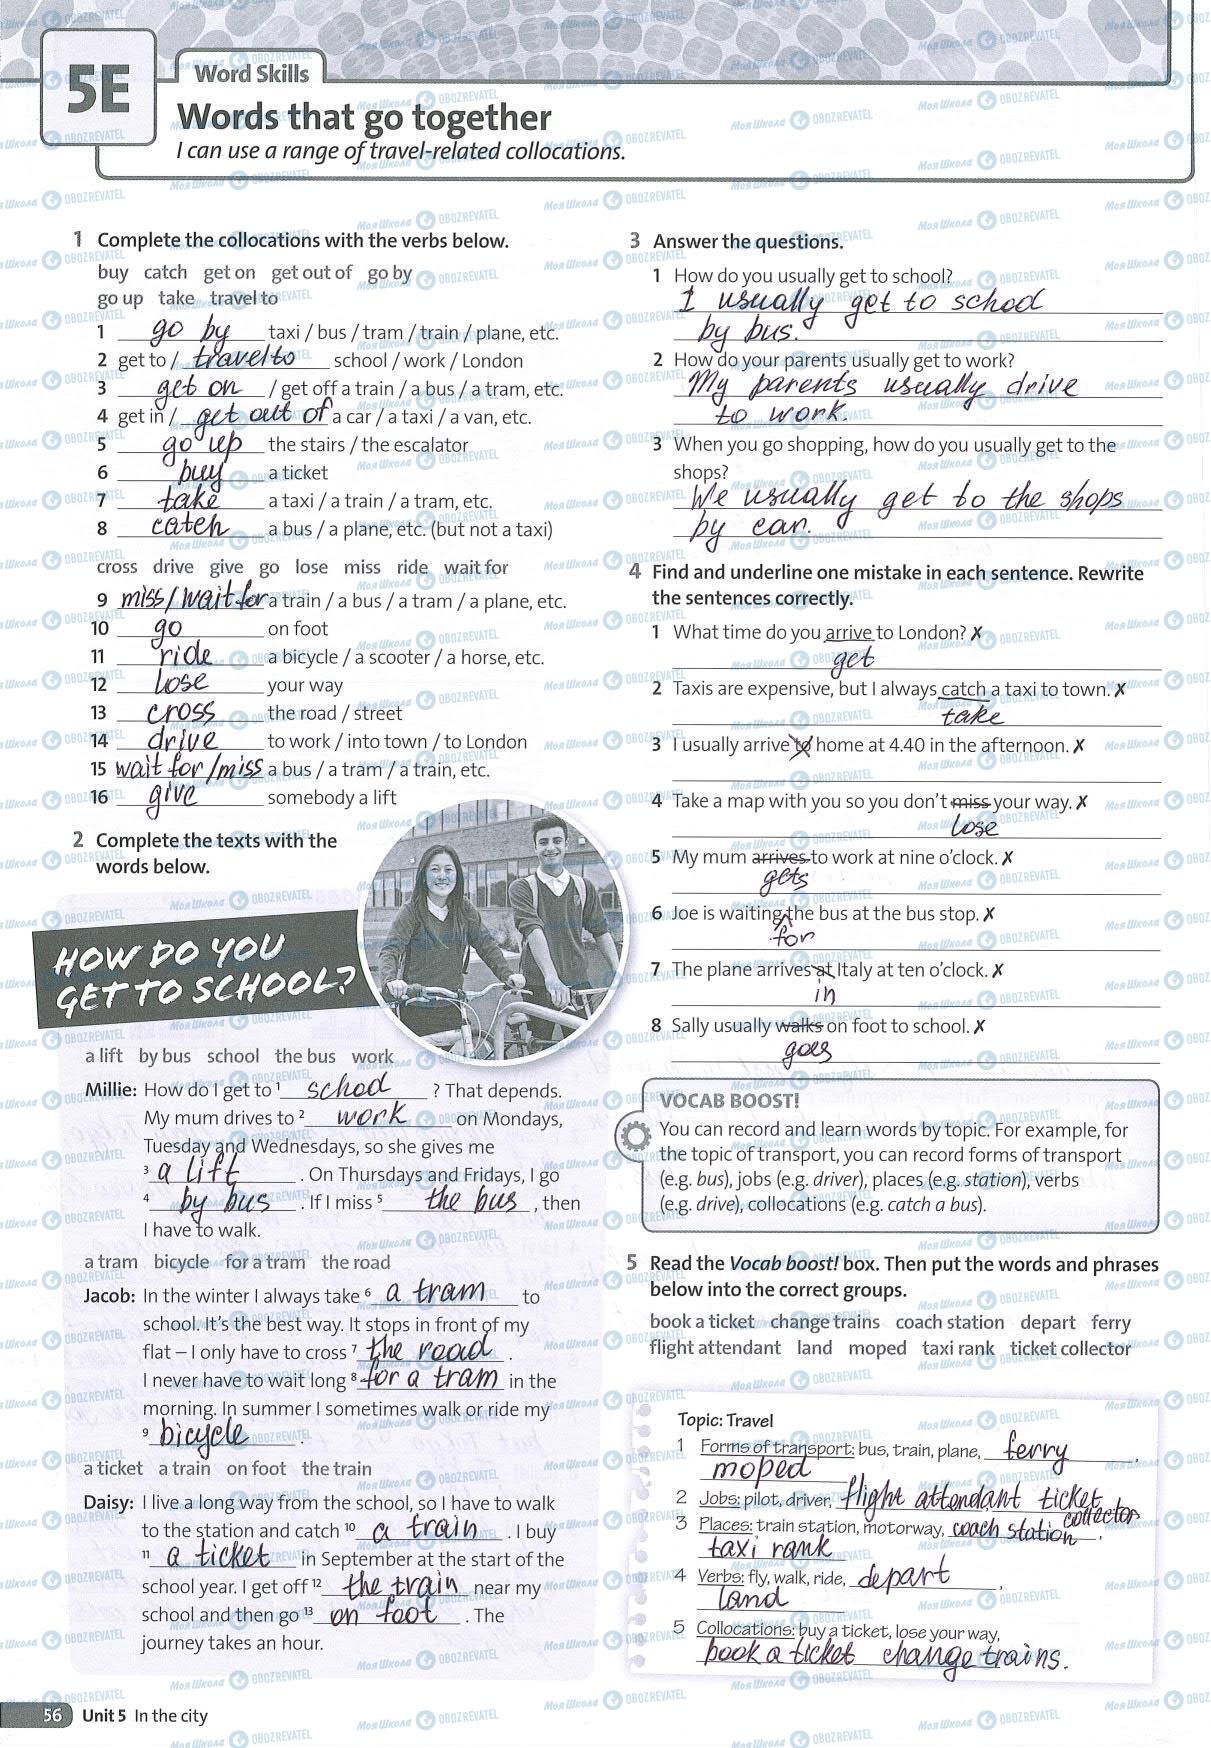 5E
Word Skills
Words that go together
I can use a range of travel-related collocations.
1 Complete the collocations with the verbs below.
buy catch get on get out of go by
go up take travel to
1 go by taxi / bus / tram / train / plane, etc.
2 get to / travel to school / work / London
3 get on / get off a train / a bus / a tram, etc.
4 get in / get out of a car / a taxi / a van, etc.
5 go up the stairs / the escalator
6 buy a ticket
7 take a taxi / a train / a tram, etc.
8 catch a bus / a plane, etc. (but not a taxi)
cross drive give go lose miss ride wait for
9 miss / wait for a train / a bus / a tram / a plane, etc.
10 go on foot
11 ride a bicycle / a scooter / a horse, etc.
12 lose your way
13 cross the road / street
14 drive to work / into town / to London
15 wait for / miss a bus / a tram / a train, etc.
16 give somebody a lift
2 Complete the texts with the
words below.
HOW DO YOU
GET TO SCHOOL?
a lift by bus school the bus work
Millie: How do I get to 1 school ? That depends.
My mum drives to 2 work on Mondays,
Tuesday and Wednesdays, so she gives me
3 a lift . On Thursdays and Fridays, I go
4 by bus . If I miss 5 the bus , then
I have to walk.
a tram bicycle for a tram the road
Jacob: In the winter I always take 6 a tram to
school. It's the best way. It stops in front of my
flat – I only have to cross 7 the road .
I never have to wait long 8 for a tram in the
morning. In summer I sometimes walk or ride my
9 bicycle .
a ticket a train on foot the train
Daisy: I live a long way from the school, so I have to walk
to the station and catch 10 a train . I buy
11 a ticket in September at the start of the
school year. I get off 12 the train near my
school and then go 13 on foot . The
journey takes an hour.
56 Unit 5 In the city
3 Answer the questions.
1 How do you usually get to school?
I usually get to school
by bus.
2 How do your parents usually get to work?
My parents usually drive
to work.
3 When you go shopping, how do you usually get to the
shops?
We usually get to the shops
by car.
4 Find and underline one mistake in each sentence. Rewrite
the sentences correctly.
1 What time do you arrive to London? ✗
get
2 Taxis are expensive, but I always catch a taxi to town. ✗
take
3 I usually arrive to home at 4.40 in the afternoon. ✗
4 Take a map with you so you don't miss your way. ✗
lose
5 My mum arrives to work at nine o'clock. ✗
gets
6 Joe is waiting the bus at the bus stop. ✗
for
7 The plane arrives at Italy at ten o'clock. ✗
in
8 Sally usually walks on foot to school. ✗
goes
VOCAB BOOST!
You can record and learn words by topic. For example, for
the topic of transport, you can record forms of transport
(e.g. bus), jobs (e.g. driver), places (e.g. station), verbs
(e.g. drive), collocations (e.g. catch a bus).
5 Read the Vocab boost! box. Then put the words and phrases
below into the correct groups.
book a ticket change trains coach station depart ferry
flight attendant land moped taxi rank ticket collector
Topic: Travel
1 Forms of transport: bus, train, plane, ferry ,
moped
2 Jobs: pilot, driver, flight attendant ticket
collector
3 Places: train station, motorway, coach station ,
taxi rank
4 Verbs: fly, walk, ride, depart ,
land
5 Collocations: buy a ticket, lose your way,
book a ticket change trains.
Моя Школа OBOZREVATEL